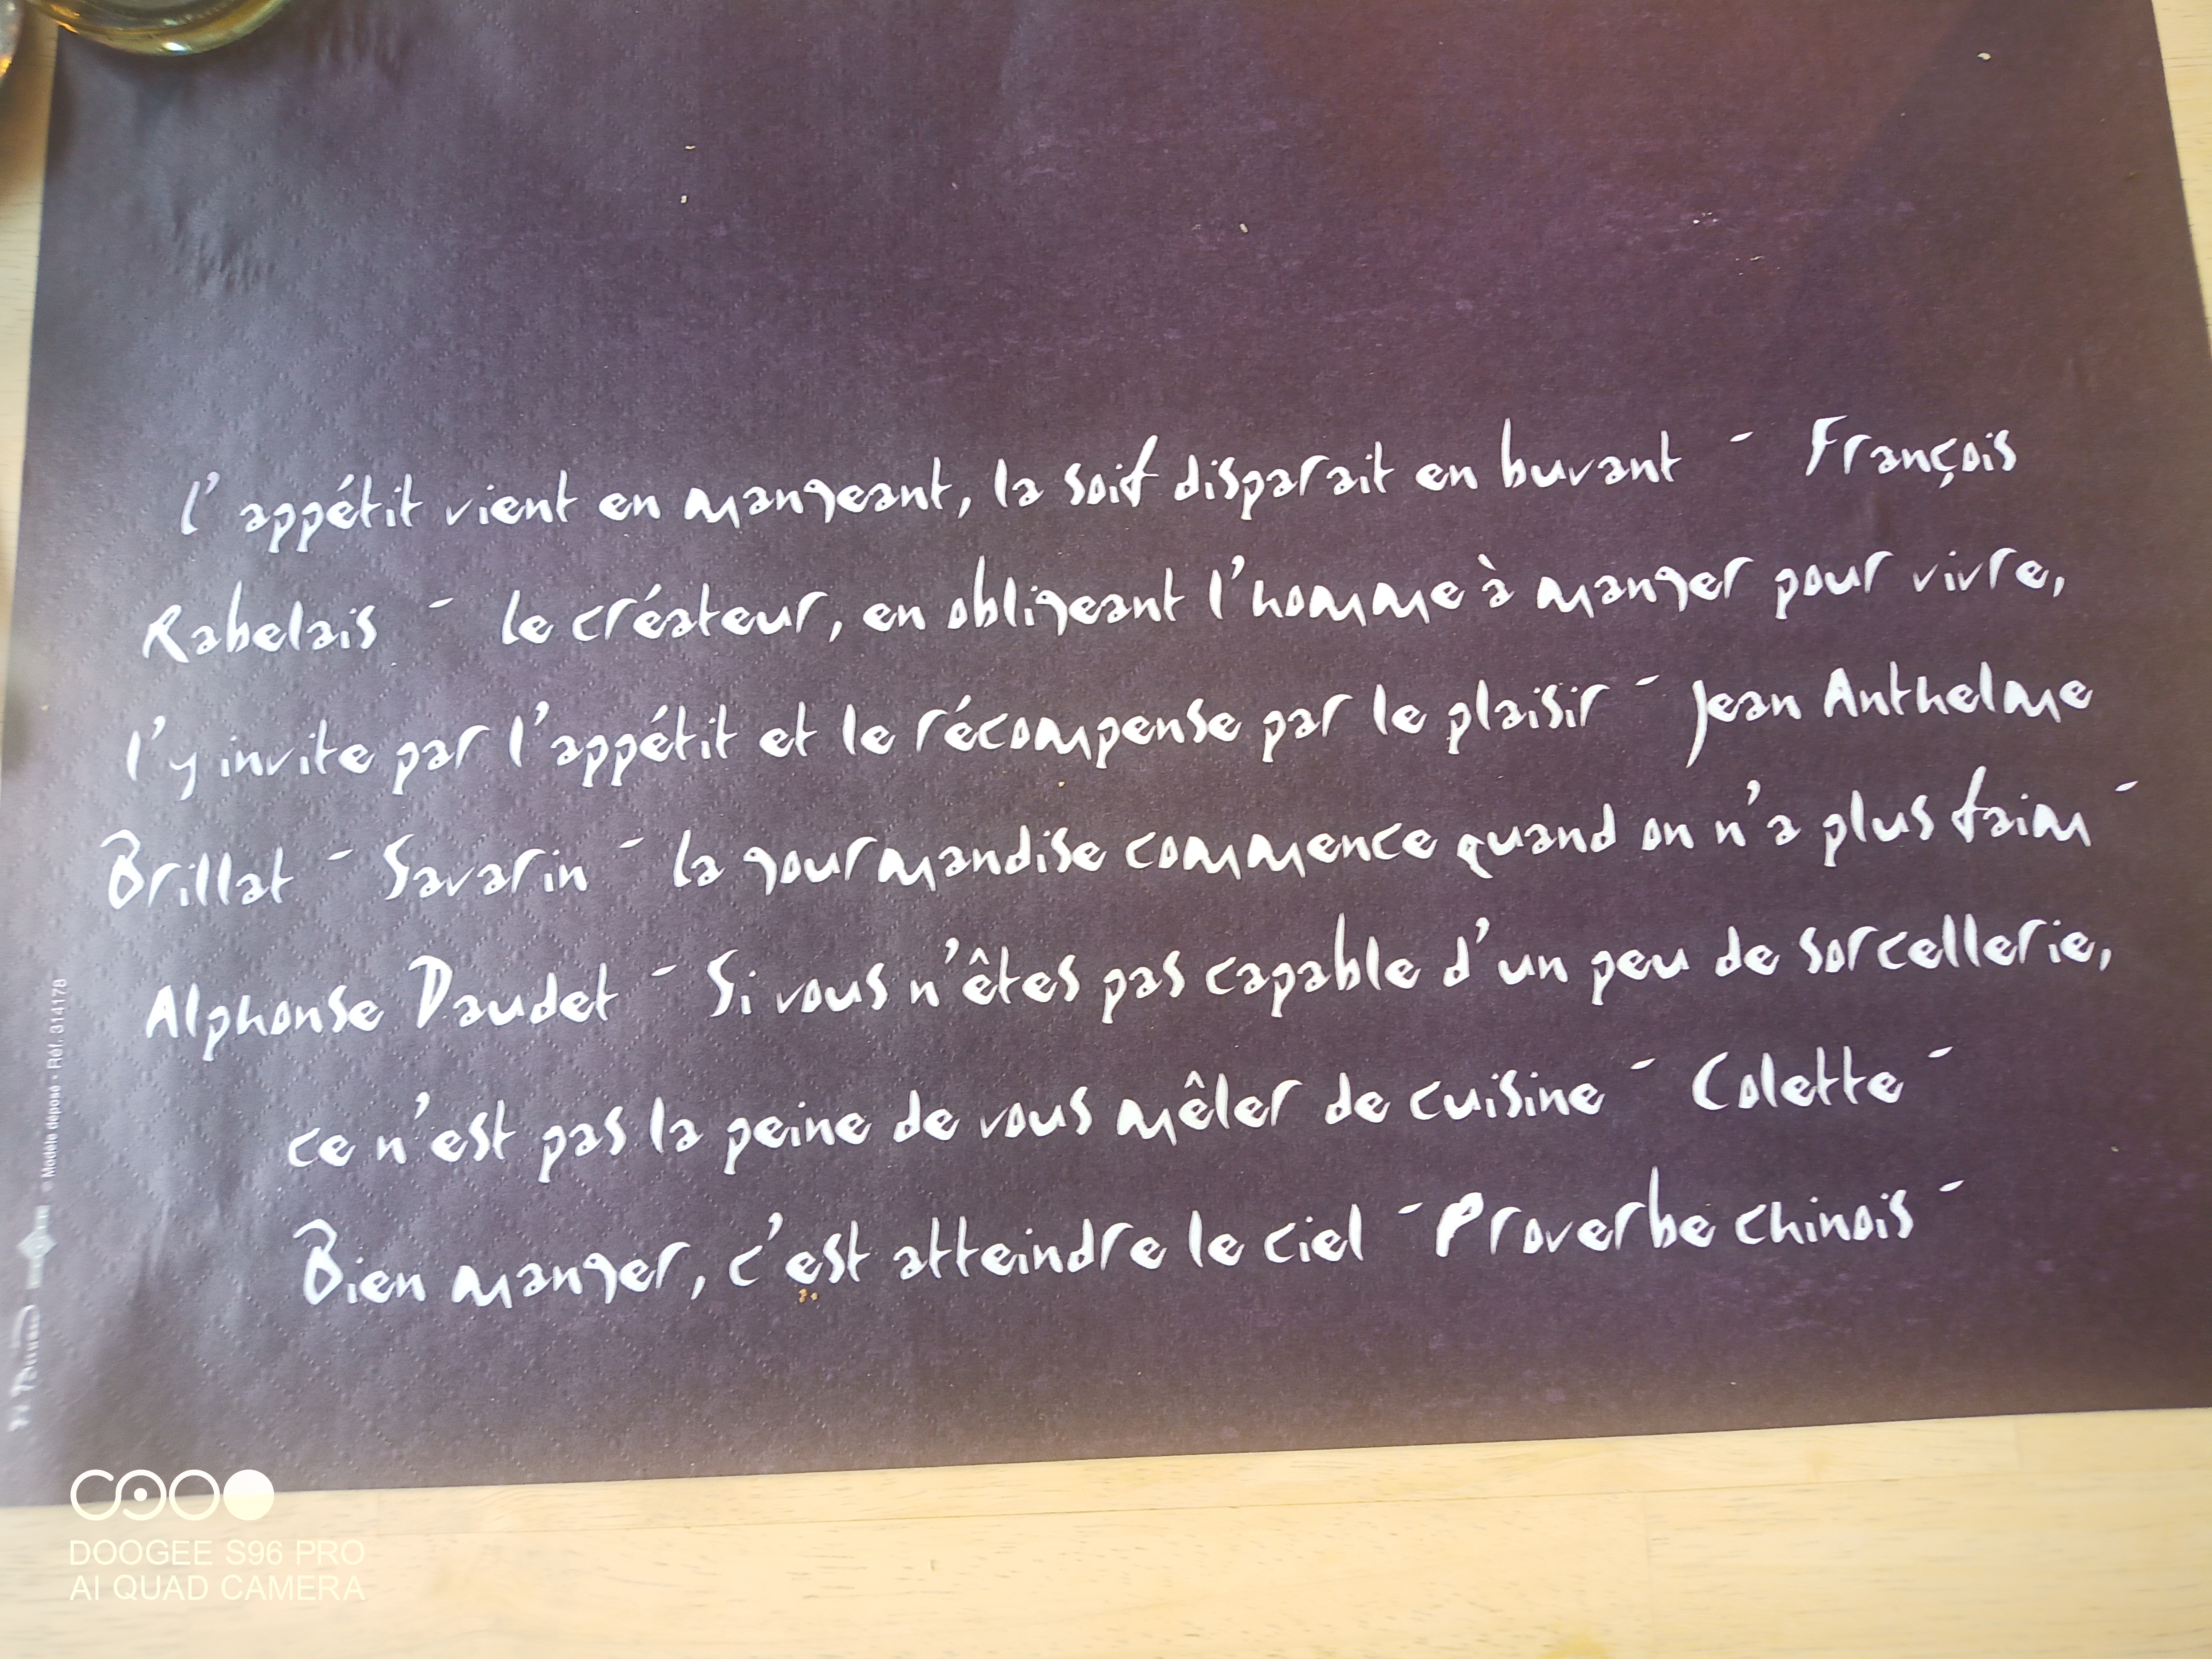 l'appétit vient en mangeant, la soif disparait en buvant - François
Rabelais - le créateur, en obligeant l'homme à manger pour vivre,
l'y invite par l'appétit et le récompense par le plaisir - Jean Anthelme
Brillat - Savarin - la gourmandise commence quand on n'a plus faim -
Alphonse Daudet - Si vous n'êtes pas capable d'un peu de sorcellerie,
ce n'est pas la peine de vous mêler de cuisine - Colette -
Bien manger, c'est atteindre le ciel - Proverbe chinois -
Modèle déposé - Réf. 314178
DOOGEE S96 PRO
AI QUAD CAMERA